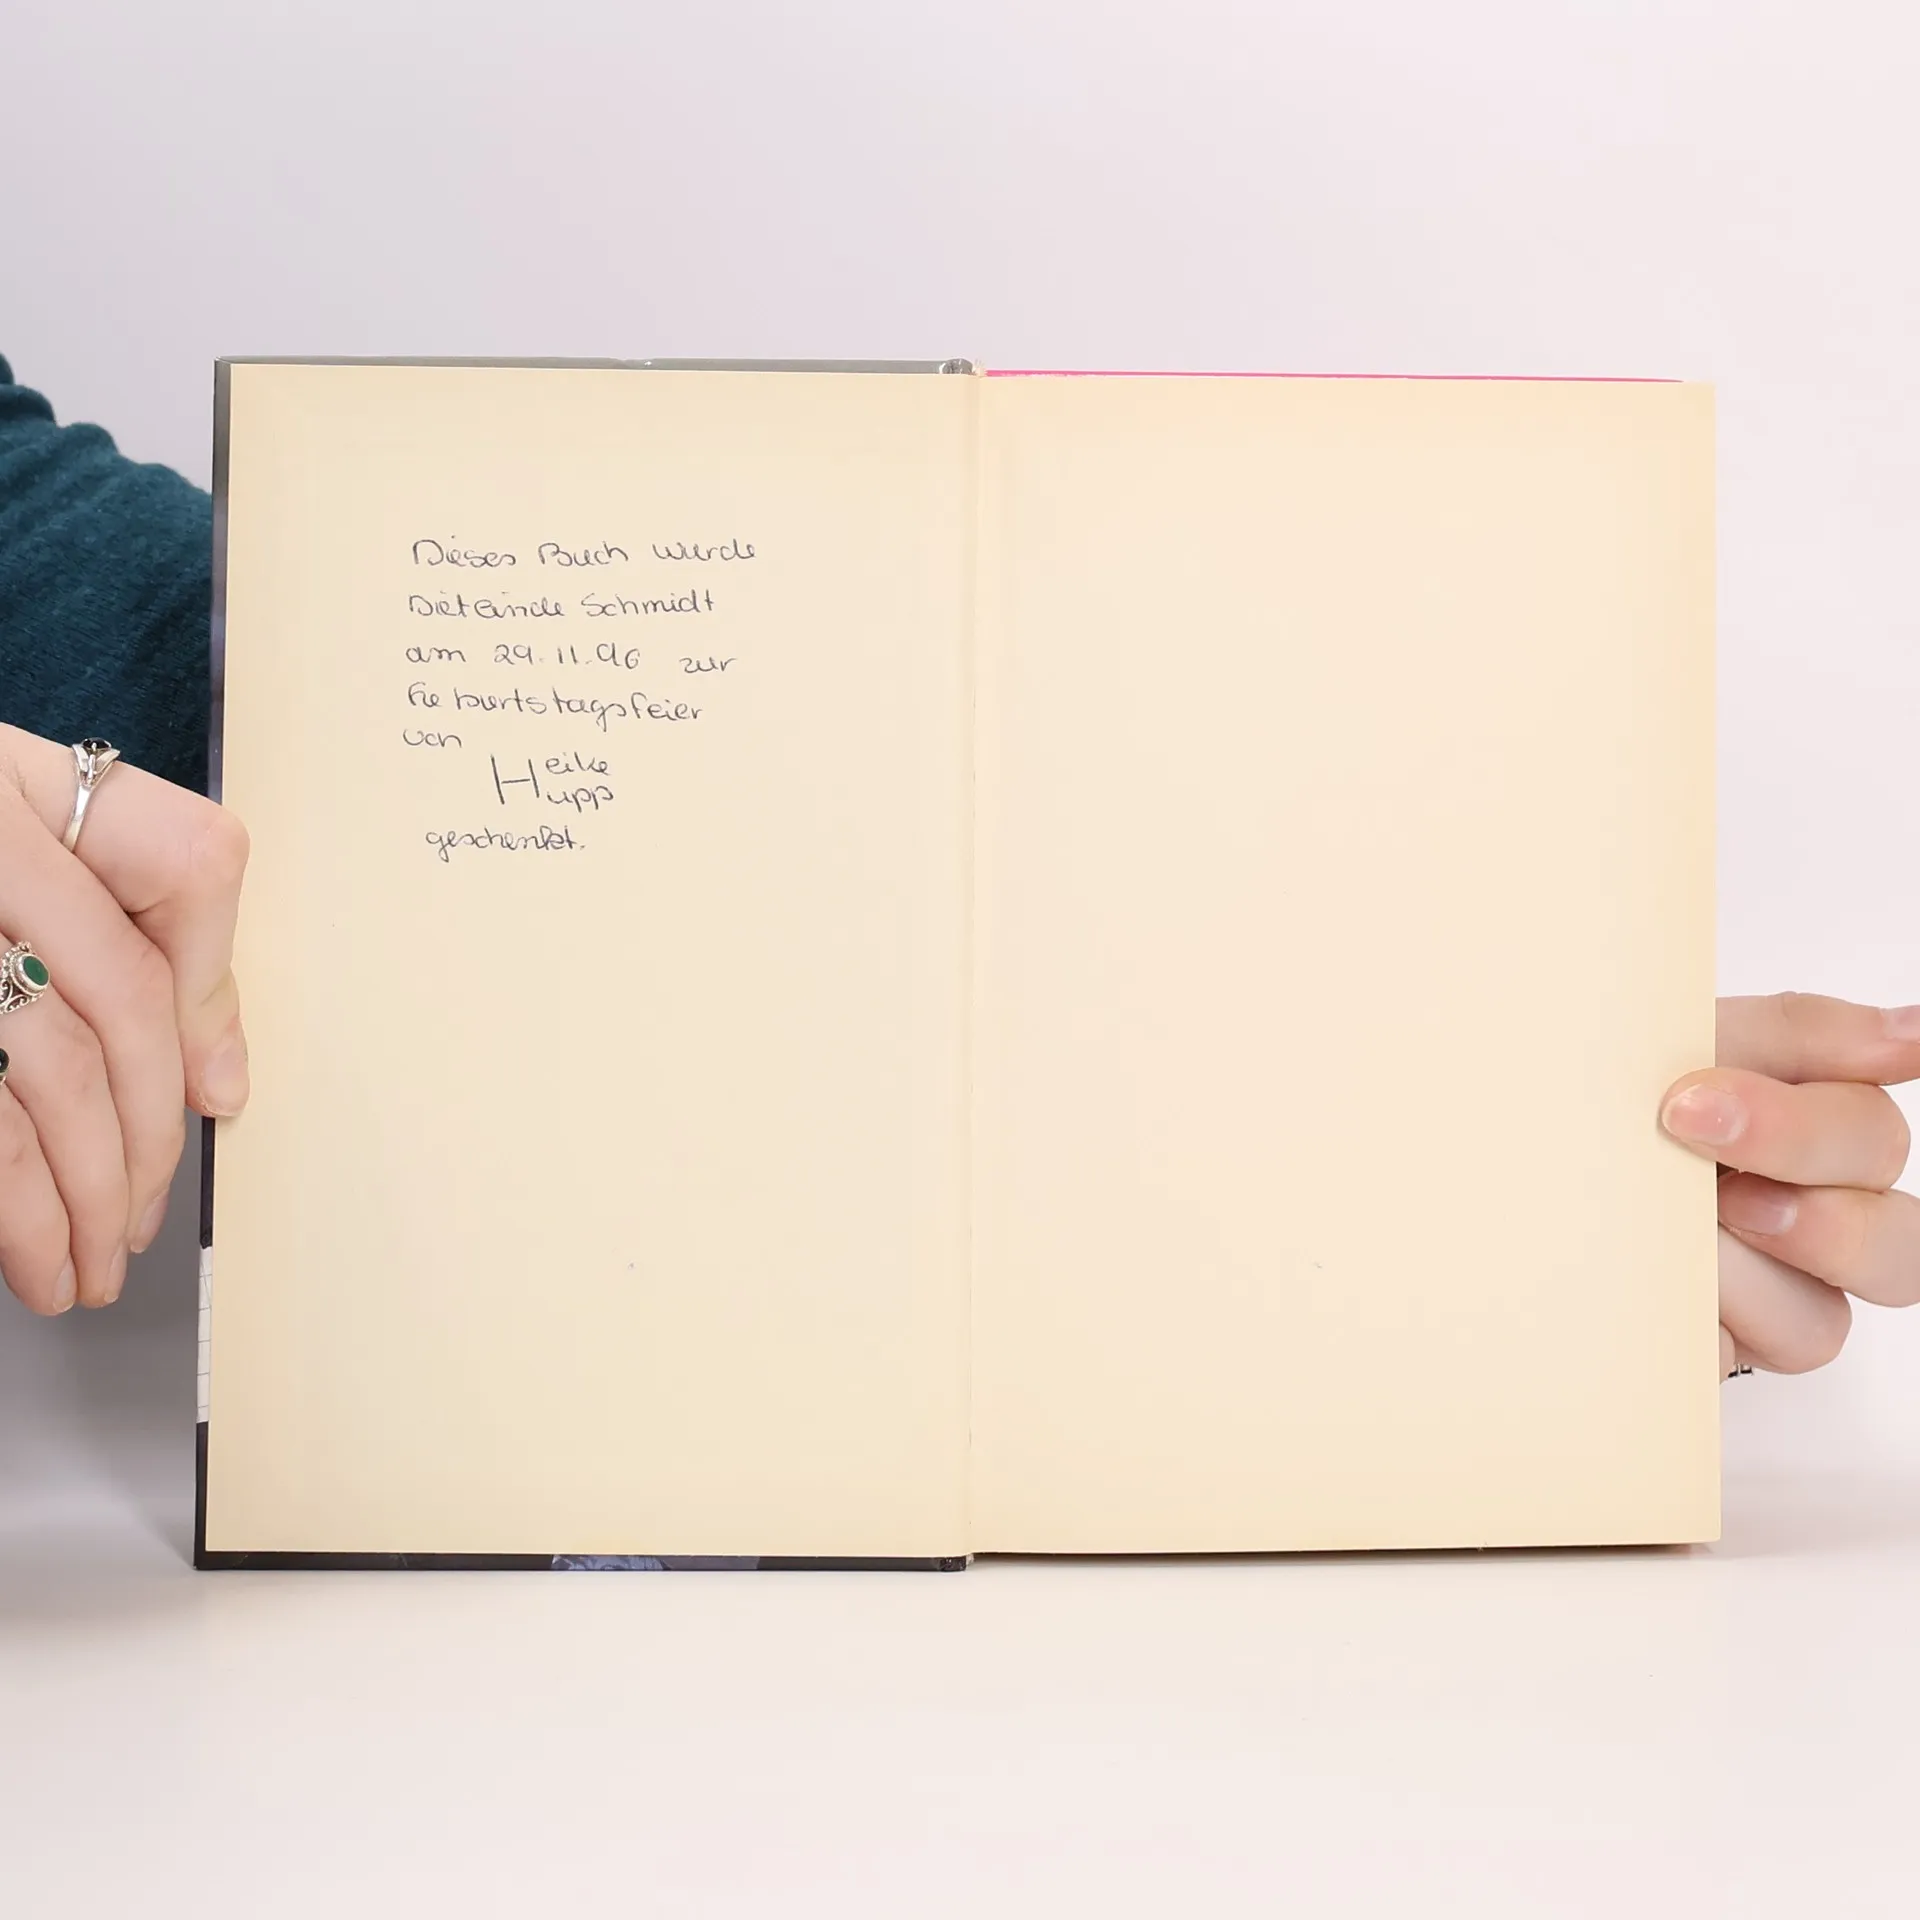 Dieses Buch wurde
Schmidt
am 29.11.96 zur
Geburtstagsfeier
von
Heike
Hupp
geschenkt.